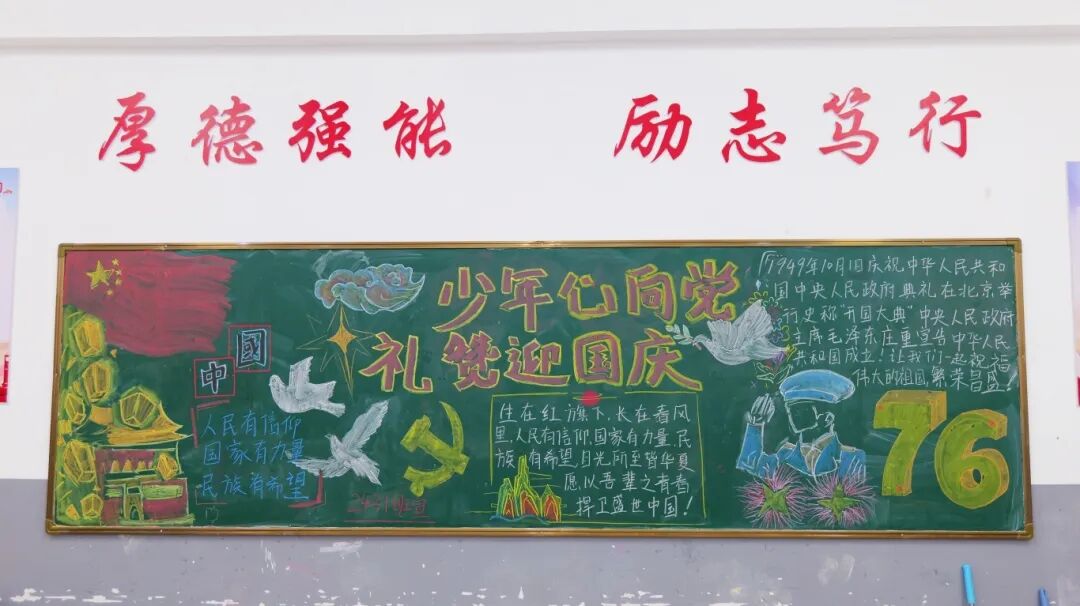 厚德强能 励志笃行
中國
人民有信仰
国家有力量
民族有希望
少年心向党
礼赞迎国庆
生在红旗下,长在春风
里,人民有信仰,国家有力量,民
族有希望,目光所至皆华夏
愿以吾辈之青春
捍卫盛世中国!
1949年10月1日庆祝中华人民共和
国中央人民政府典礼在北京举
行史称"开国大典"中央人民政府
主席毛泽东庄重宣告中华人民
共和国成立!让我们一起祝福
伟大的祖国繁荣昌盛!
76